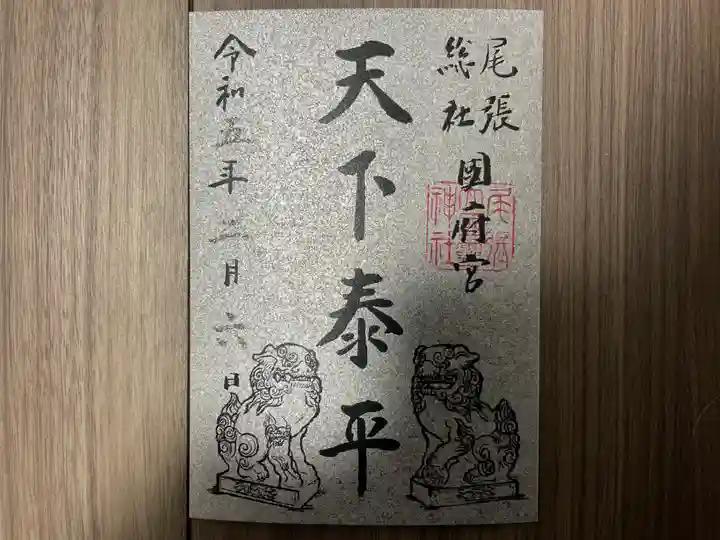 尾張
総社
国府宮
尾張
大國霊
神社
天下泰平
令和五年二月六日